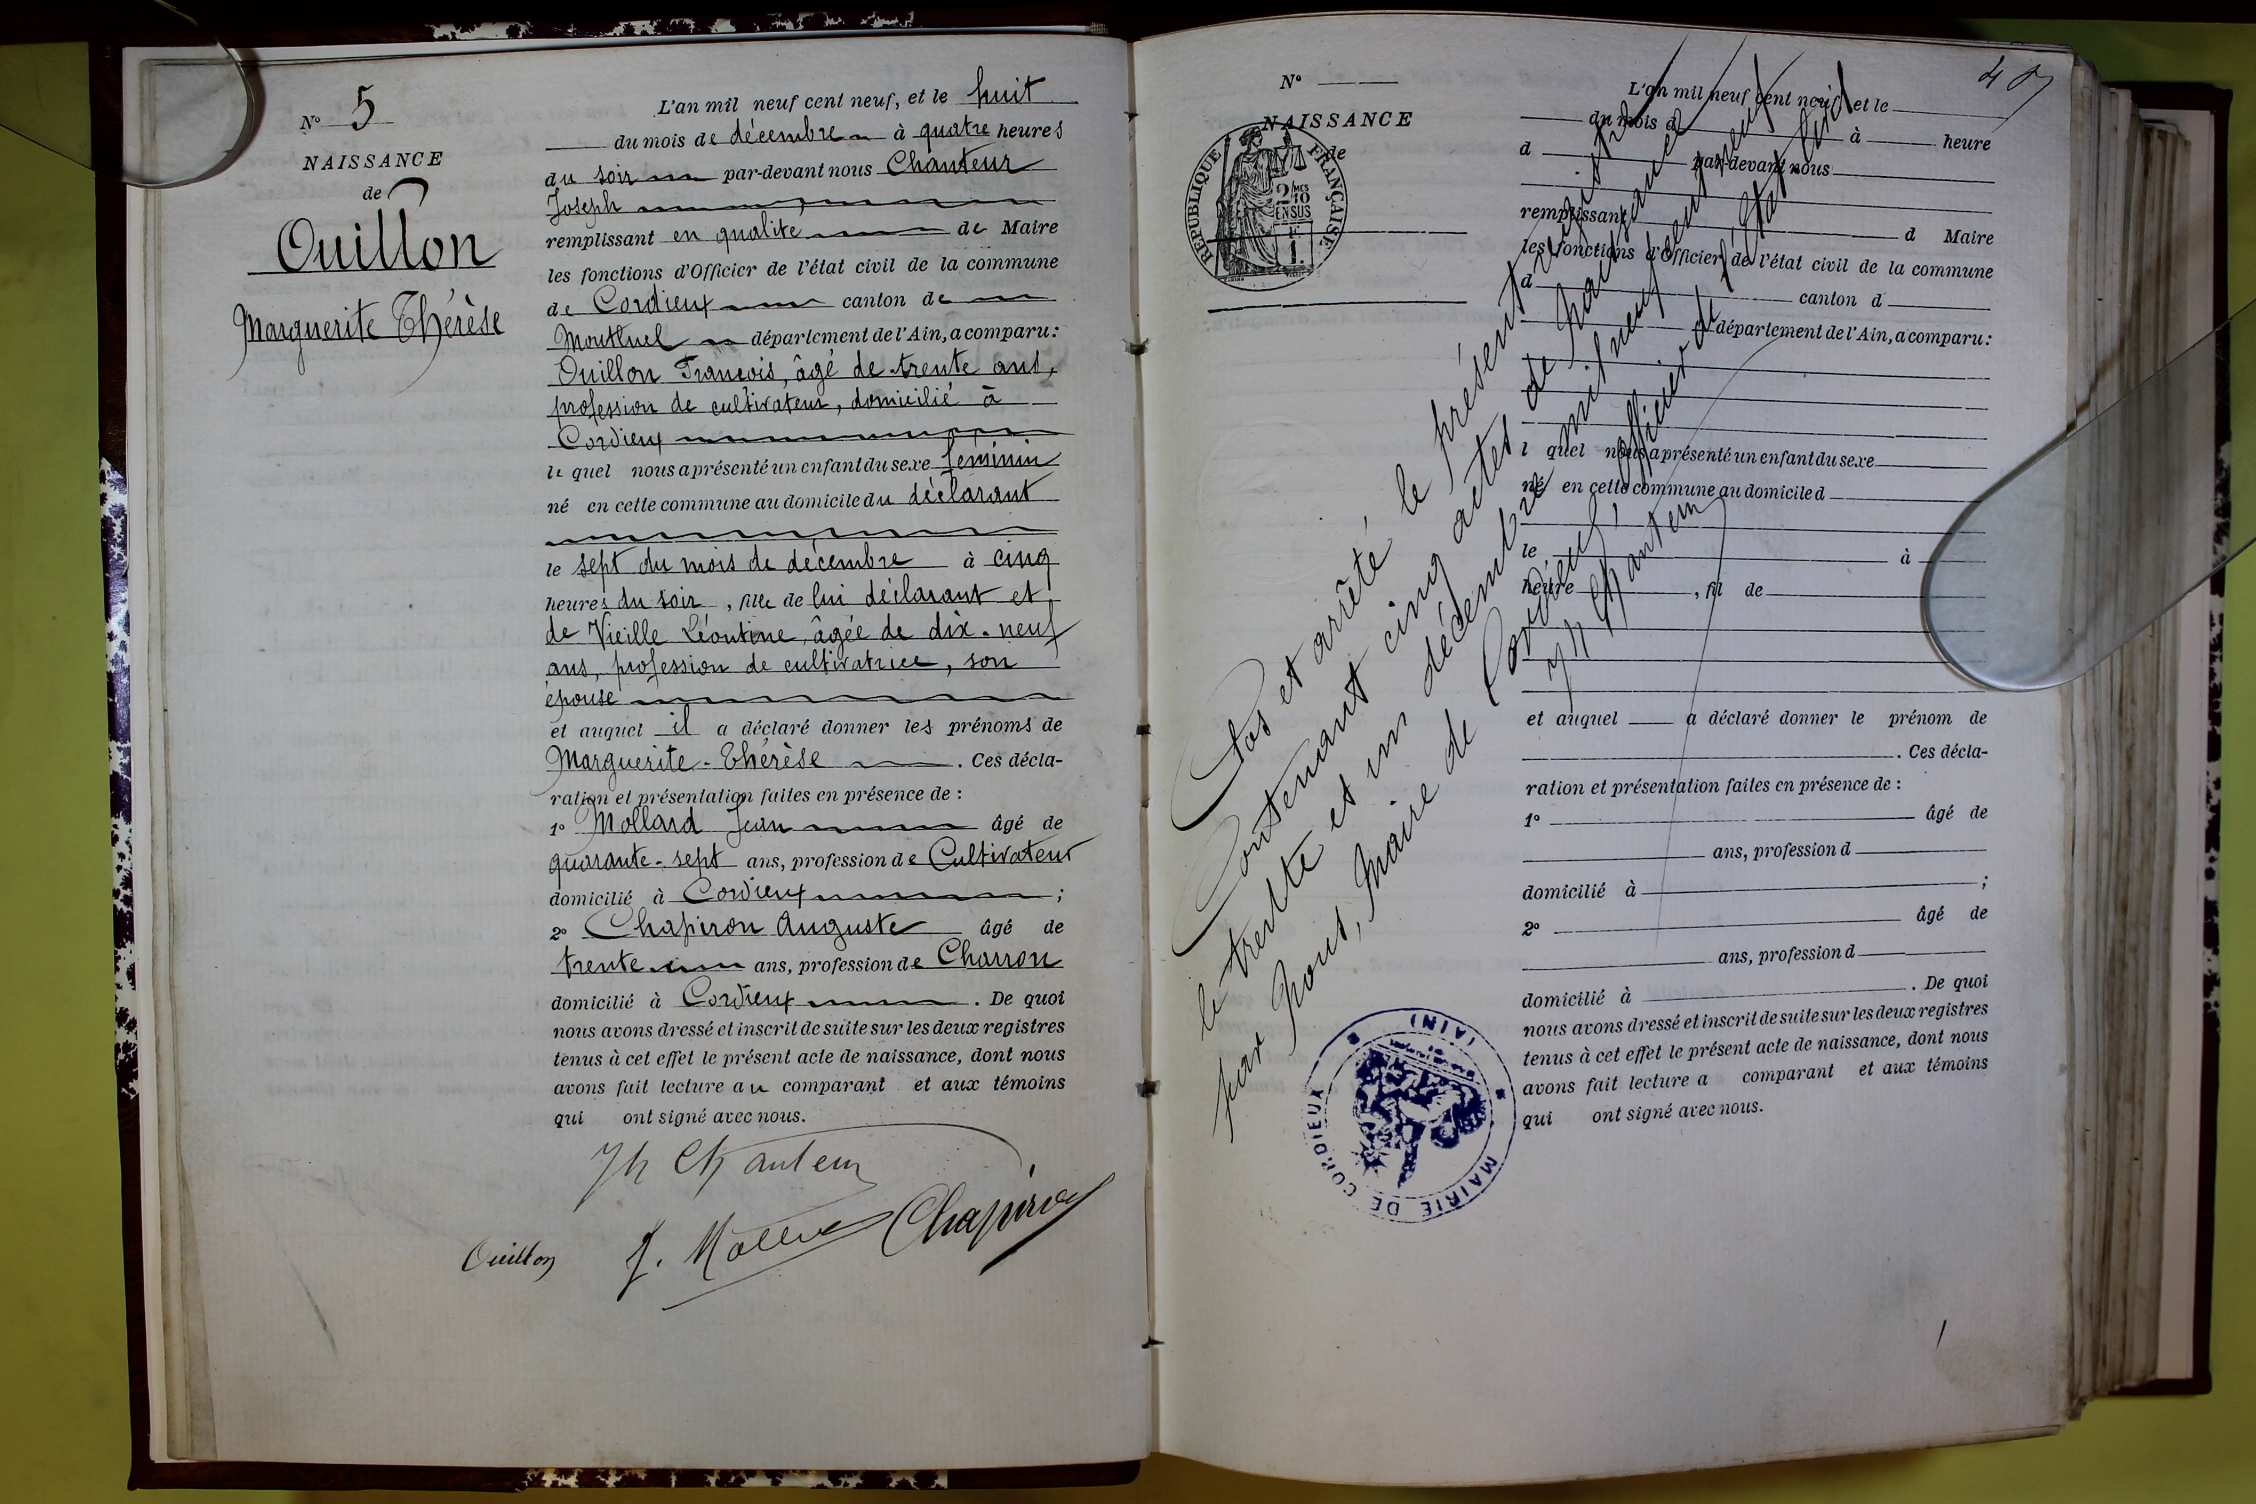 N° 5
NAISSANCE
de
Ouillon
Marguerite Thérèse
L'an mil neuf cent neuf, et le huit
du mois de décembre à quatre heures
du soir par-devant nous Chanteur
Joseph
remplissant en qualité de Maire
les fonctions d'Officier de l'état civil de la commune
de Cordieux canton de
Montluel département de l'Ain, a comparu:
Ouillon François, âgé de trente ans,
profession de cultivateur, domicilié à
Cordieux
le quel nous a présenté un enfant du sexe féminin
né en cette commune au domicile du déclarant
le sept du mois de décembre à cinq
heures du soir, fille de lui déclarant et
de Vieille Léontine, âgée de dix-neuf
ans, profession de cultivatrice, son
épouse
et auquel il a déclaré donner les prénoms de
Marguerite-Thérèse. Ces décla-
ration et présentation faites en présence de :
1° Mollard Jean âgé de
quarante-sept ans, profession de Cultivateur
domicilié à Cordieux ;
2° Chapiron Auguste âgé de
trente ans, profession de Charron
domicilié à Cordieux. De quoi
nous avons dressé et inscrit de suite sur les deux registres
tenus à cet effet le présent acte de naissance, dont nous
avons fait lecture au comparant et aux témoins
qui ont signé avec nous.
Jh Chanteur
Ouillon J. Mollard Chapiron
N°
NAISSANCE
de
RÉPUBLIQUE FRANÇAISE
2/10
EN SUS
1
L'an mil neuf cent neuf, et le
du mois d à heure
d par-devant nous
remplissant d Maire
les fonctions d'Officier de l'état civil de la commune
d canton d
département de l'Ain, a comparu:
l quel nous a présenté un enfant du sexe
né en cette commune au domicile d
le à
heure , fil de
et auquel a déclaré donner le prénom de
. Ces décla-
ration et présentation faites en présence de :
1° âgé de
ans, profession d
domicilié à ;
2° âgé de
ans, profession d
domicilié à . De quoi
nous avons dressé et inscrit de suite sur les deux registres
tenus à cet effet le présent acte de naissance, dont nous
avons fait lecture a comparant et aux témoins
qui ont signé avec nous.
Clos et arrêté le présent registre
Contenant cinq actes de naissances
le trente et un décembre mil neuf cent neuf
par Nous, Maire de Cordieux, officier de l'État Civil
Jh Chanteur
MAIRIE DE CORDIEUX
(AIN)